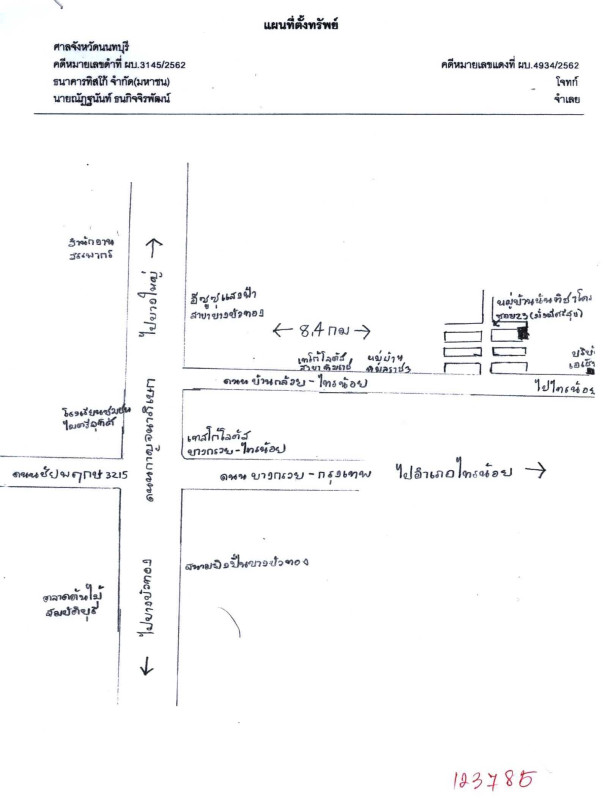 แผนที่ตั้งทรัพย์
ศาลจังหวัดนนทบุรี
คดีหมายเลขดำที่ ผบ.3145/2562
คดีหมายเลขแดงที่ ผบ.4934/2562
ธนาคารทิสโก้ จำกัด(มหาชน)
โจทก์
นายณัฏฐนันท์ ธนกิจจิรพัฒน์
จำเลย
สำนักงาน
สรรพากร
ไปบางใหญ่
อีซูซุแสงฟ้า
สาขาบางบัวทอง
8.4 กม
หมู่บ้านนันทิชา
ซอย23
เทสโก้โลตัส
สาขา
หมู่บ้าน
ถนน บ้านกล้วย - ไทรน้อย
ไปไทรน้อย
ถนนกาญจนาภิเษก
โรงเรียนชุมชน
ไมตรีอุทิศ
เทสโก้โลตัส
บางกรวย-ไทรน้อย
ถนนชัยพฤกษ์ 3215
ถนน บางกรวย - กรุงเทพ
ไปอำเภอไทรน้อย
สนามยิงปืนบางบัวทอง
ไปบางบัวทอง
ตลาดต้นไม้
สมบัติบุรี
123785